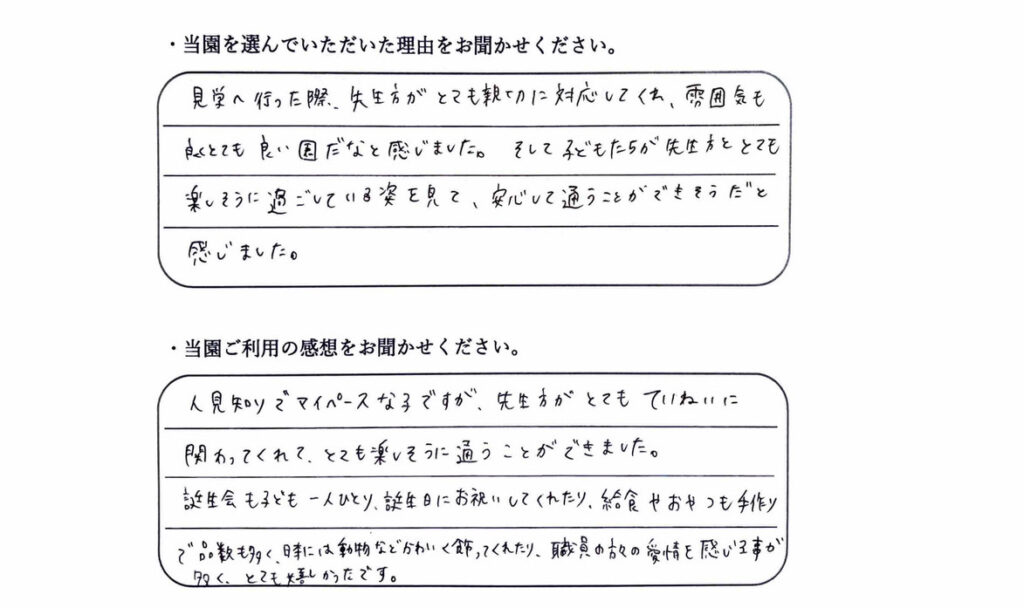 ・当園を選んでいただいた理由をお聞かせください。
見学へ行った際、先生方がとても親切に対応してくれ、雰囲気も
良くとても良い園だなと感じました。そして子どもたちが先生方ととても
楽しそうに過ごしている姿を見て、安心して通うことができそうだと
感じました。
・当園ご利用の感想をお聞かせください。
人見知りでマイペースな子ですが、先生方がとてもていねいに
関わってくれて、とても楽しそうに通うことができました。
誕生会も子ども一人ひとり、誕生日にお祝いしてくれたり、給食やおやつも手作り
で品数も多く、時には動物などかわいく飾ってくれたり、職員の方々の愛情を感じる事が
多く、とても嬉しかったです。